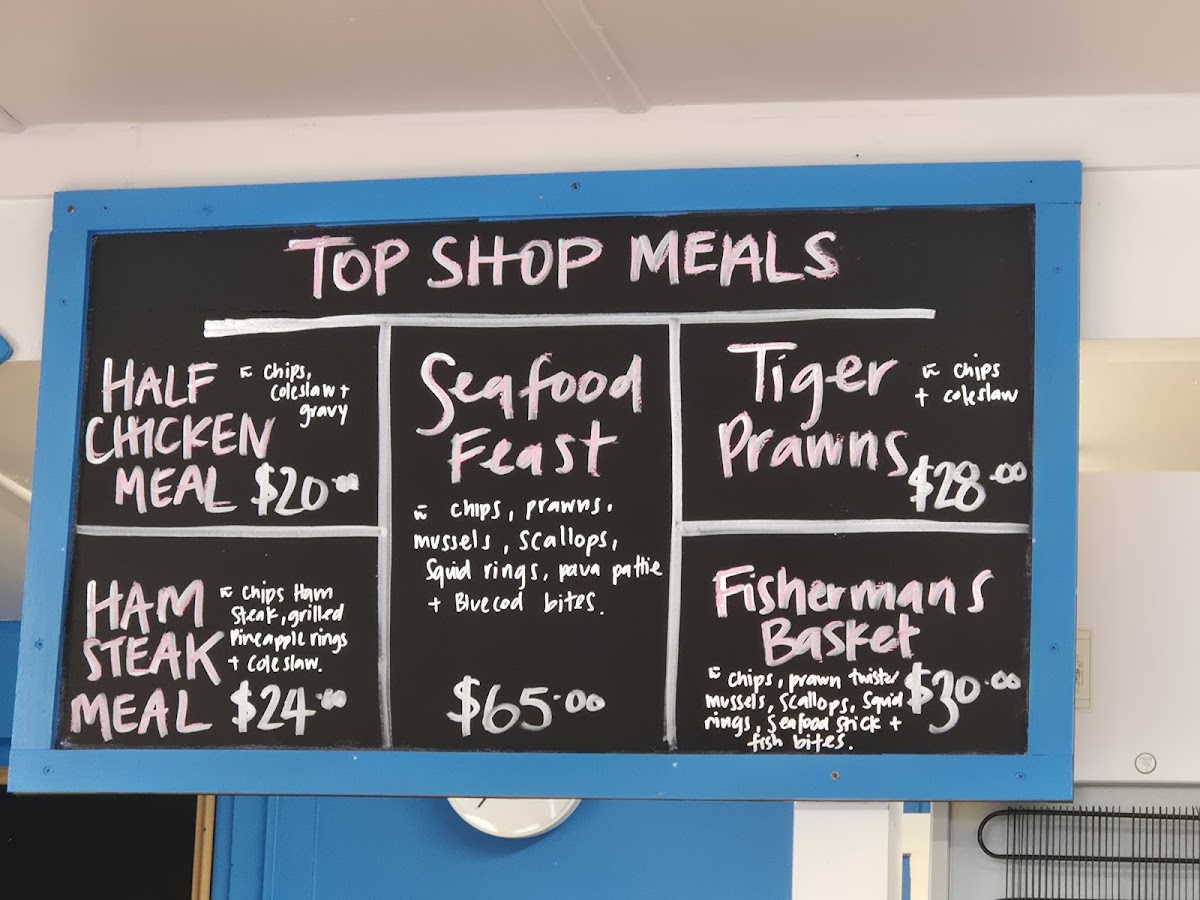 TOP SHOP MEALS
HALF
CHICKEN
MEAL $20.00
w chips,
coleslaw +
gravy
HAM
STEAK
MEAL $24.00
w chips Ham
steak, grilled
Pineapple rings
+ coleslaw.
Seafood
Feast
w chips, prawns,
mussels, scallops,
squid rings, pava pattie
+ Bluecod bites.
$65.00
Tiger
Prawns
w chips
+ coleslaw
$28.00
Fishermans
Basket
w chips, prawn twister
mussels, scallops, squid
rings, seafood stick +
fish bites.
$30.00